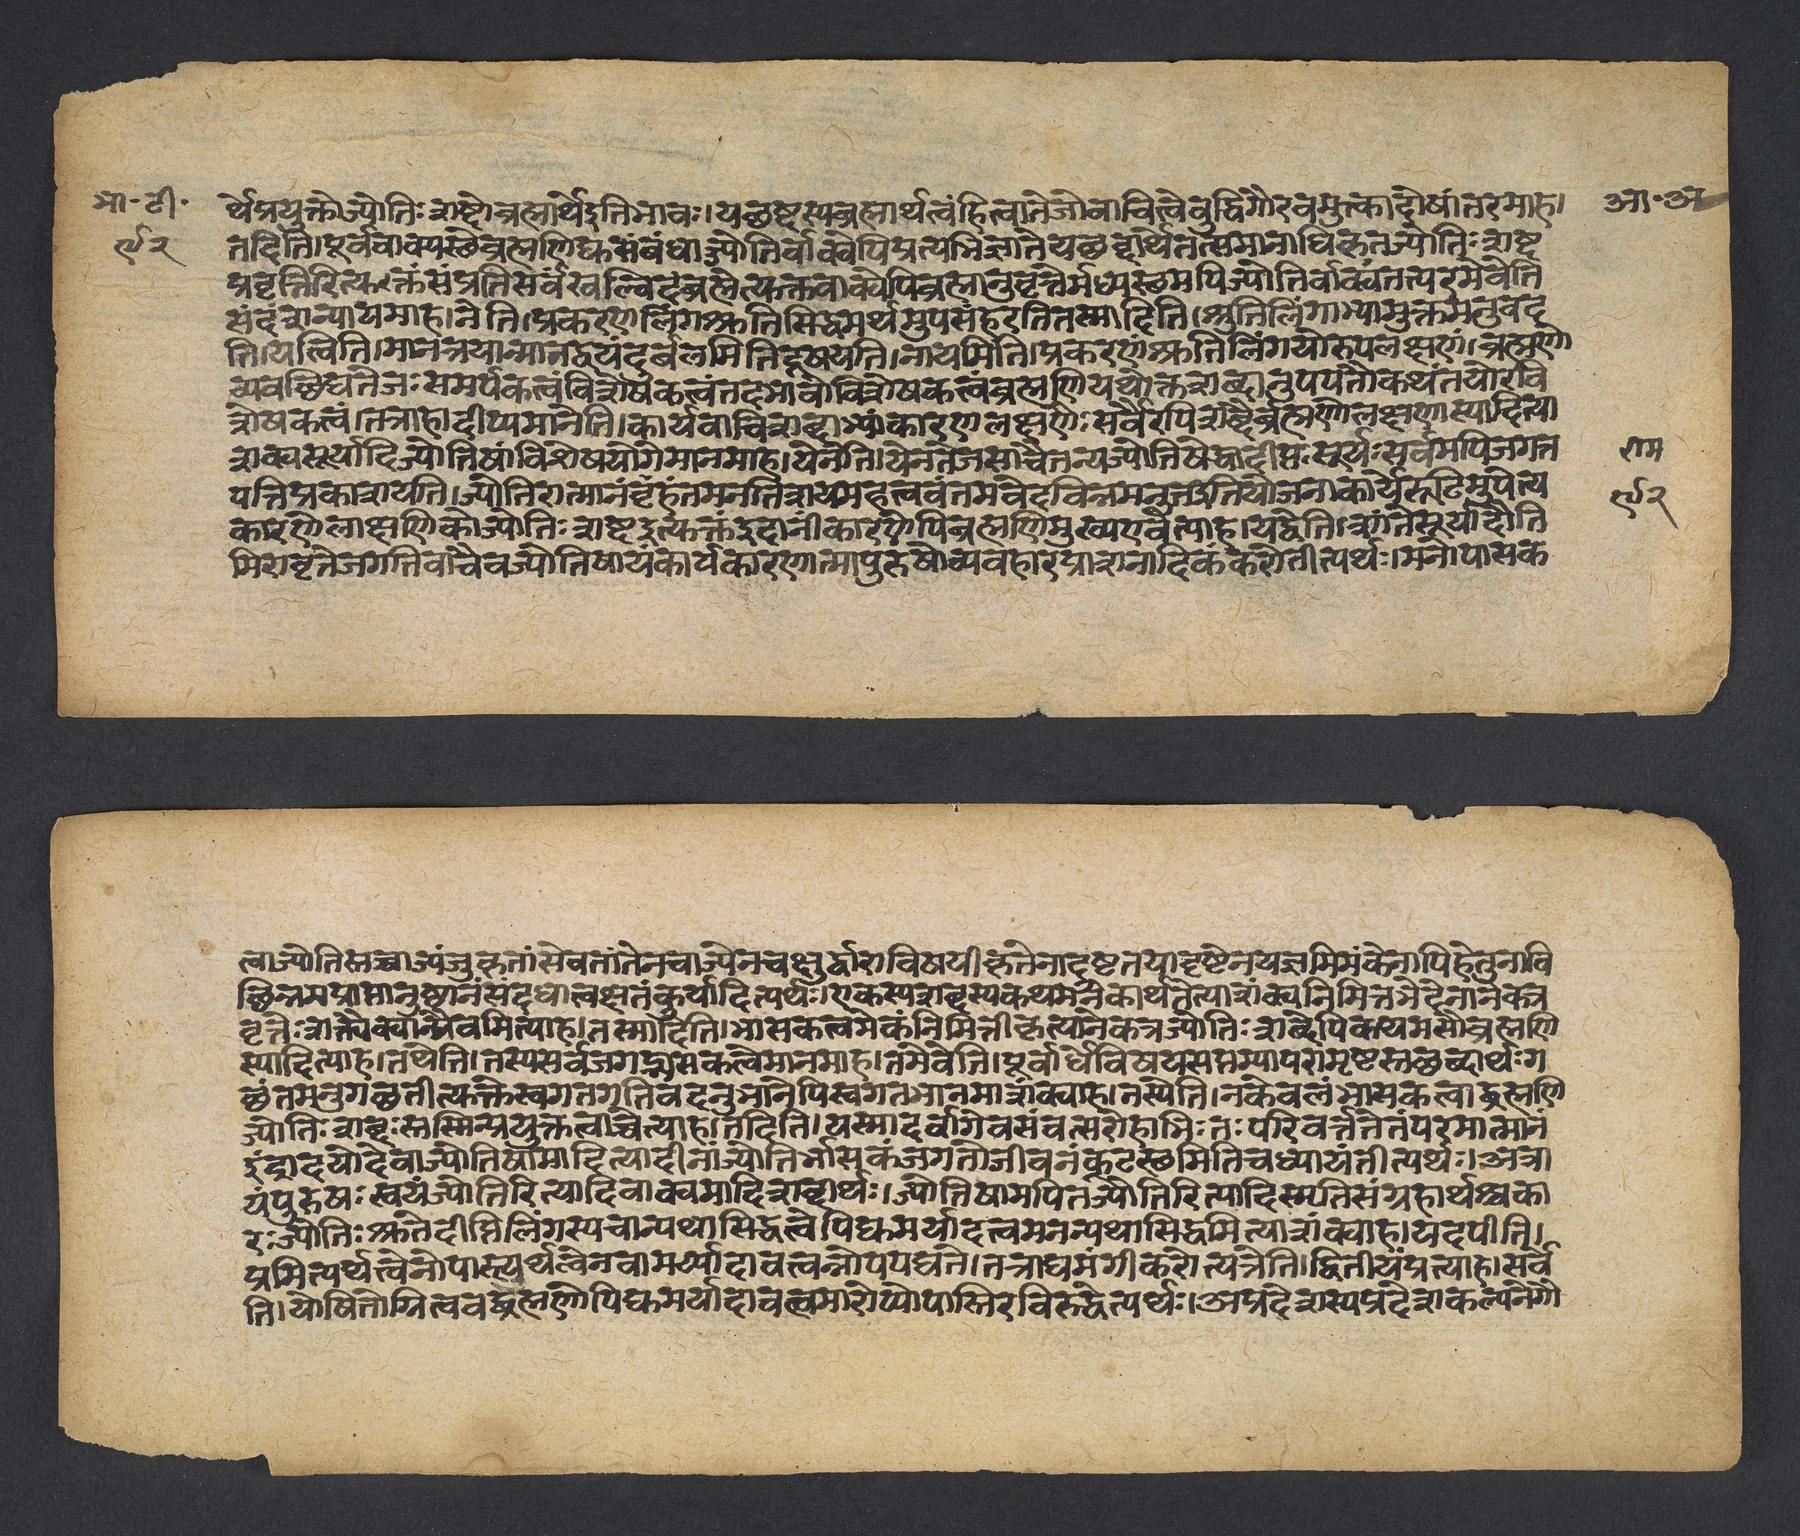 भा॰ टी॰
९२
र्थेप्रयुक्तोज्योतिःशब्दोब्रह्मार्थेइतिभावः।यच्छब्दस्यब्रह्मार्थत्वंहित्वातेजोवाचित्वेबुद्धिगौरवमुत्कादोषांतरमाह।
तदिति।पूर्ववाक्यस्थेब्रह्मणिद्युसंबंधाज्ज्योतिर्वाक्येपिप्रत्यभिज्ञातेयच्छब्दार्थेतत्समानाधिकृतज्योतिःशब्द
प्रवृत्तिरित्युक्तंसंप्रतिसर्वंखल्विदंब्रह्मेत्युक्तवाक्येपिब्रह्मानुवृत्तेर्मध्यस्थमपिज्योतिर्वाक्यंतत्परमेवेति
संदंशन्यायमाह।नेति।प्रकरणलिंगश्रुतिसिद्धमर्थमुपसंहरतितस्मादिति।श्रुतिलिंगाभ्यामुक्तमनुवद
ति।यत्विति।मानत्रयान्मानद्वयंदुर्बलमितिदूषयति।नायमिति।प्रकरणंश्रुतिलिंगयोरुपलक्षणं।ब्रह्मणो
व्यवच्छिद्यतेजःसमर्पकत्वंविशेषकत्वंतदभावोविशेषकत्वंब्रह्मणियथोक्तशब्दानुपपत्तौकथंतयोरवि
शेषकत्वं।तत्राहादीप्यमानेति।कार्यवाचिशब्दाभ्यांकारणलक्षणेःसर्वैरपिशब्दैर्ब्रह्मणोलक्षणास्यादित्या
शंक्यसूर्यादिज्योतिषांविशेषयोगेमानमाह।येनेति।येनतेजसाचैतन्यज्योतिषेद्धादीप्तःसूर्यःसर्वमपिजगत्त
पत्तिप्रकाशयति।ज्योतिरात्मानंबृहंतमनतिशयमहत्त्ववंतमवेदविन्नमनुतइतियोजनाकार्येरूढिमुपेत्य
कारणेलाक्षणिकोज्योतिःशब्दइत्युक्तंइदानींकारणेपिब्रह्मणिमुख्यएवेत्याह।यद्वेति।शांतेसूर्यादौति
मिरावृतेजगतिवाचैवज्योतिषायंकार्यकारणात्मापुरुषोव्यवहारप्राशनादिकंकरोतीत्यर्थः।मनोपासक
आ॰ अ
राम
९२
त्वाज्योतिस्तच्चाज्यंजुहुतांसेवतांतेनचाज्येनचक्षुर्द्वाराविषयीकृतेनादृष्टतयादृष्टेनयज्ञमिमंकेनापिहेतुनावि
च्छिन्नमप्राप्तानुष्ठानंसंदधात्वक्षतंकुर्यादित्यर्थः।एकस्यशब्दस्यकथमनेकार्थतेत्याशंक्यनिमित्तभेदेनानेकत्र
वृत्तेःशक्त्यैक्यान्मैवमित्याह।तस्मादिति।भासकत्वमेकंनिमित्तीकृत्यानेकत्रज्योतिःशब्देपिकथमसौब्रह्मणि
स्यादित्याह।तथेति।तस्यसर्वजगद्भासकत्वेमानमाह।तमेवेति।पूर्वार्धेविषयसप्तम्यापरामृष्टस्तच्छब्दार्थःग
च्छंतमनुगच्छतीत्युक्तेस्वगतगतिवदनुभानेपिस्वगतभानमाशंक्याह।तस्येति।नकेवलंभासकत्वाद्ब्रह्मणि
ज्योतिःशब्दःस्तस्मिन्प्रयुक्तत्वाच्चेत्याह।तदिति।यस्मादर्वागेवसंवत्सरोहोभिःतःपरिवर्त्ततेतंपरमात्मानं
इंद्रादयोदेवाज्योतिषामादित्यादीनांज्योतिर्भासकंजगतोजीवनंकूटस्थमितिचध्यायंतीत्यर्थः।अत्रा
यंपुरुषःस्वयंज्योतिरित्यादिवाक्यमादिशब्दार्थः।ज्योतिषामपितज्ज्योतिरित्यादिस्मृतिसंग्रहार्थश्चका
रःज्योतिःश्रुतेदीप्तिलिंगस्यचान्यथासिद्धत्वेपिद्युमर्यादत्वमनन्यथासिद्धमित्याशंक्याह।यदपीति।
प्रमित्यर्थत्वेनोपास्त्यर्थत्वेनवामर्य्यादावत्वन्नोपपद्यते।तत्राद्यमंगीकरोत्यत्रेति।द्वितीयंप्रत्याह।सर्वे
ति।योषितोग्नित्ववद्ब्रह्मणोपिद्युमर्यादावत्वमारोप्योपास्तिरविरुद्धेत्यर्थः।अप्रदेशस्यप्रदेशकल्पनेगौ